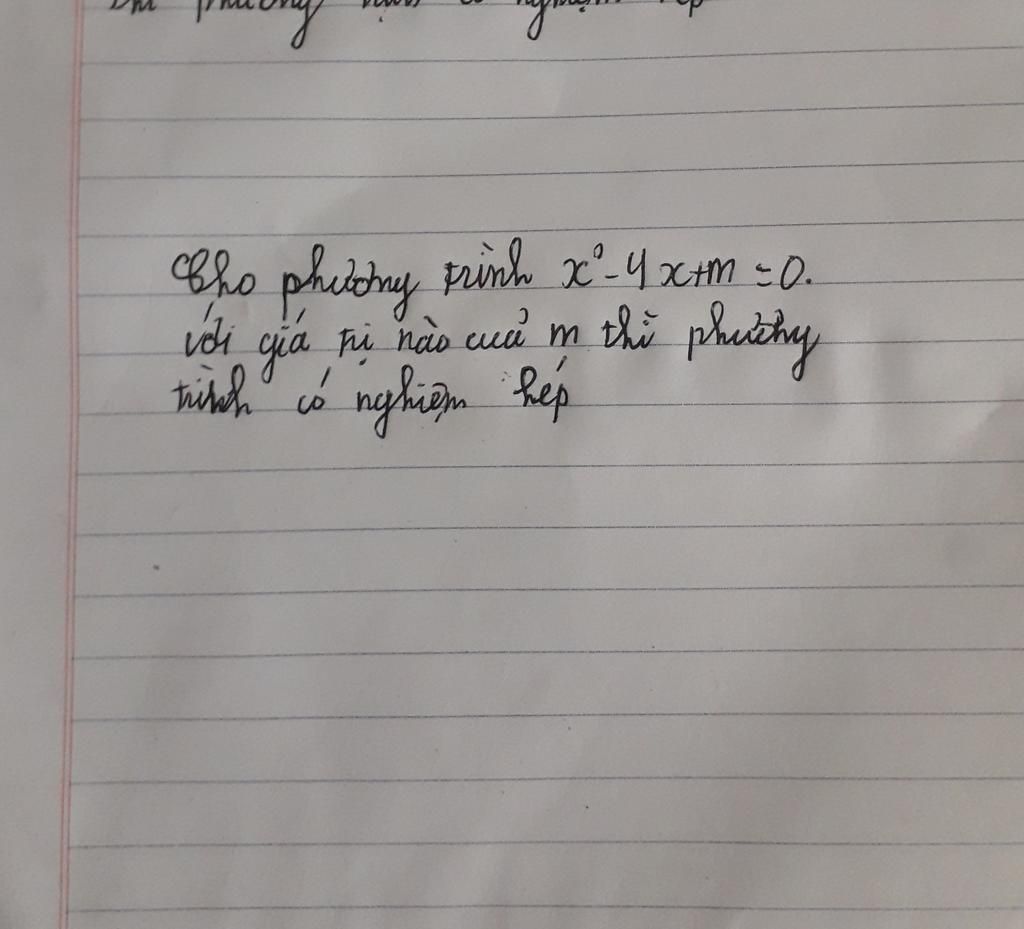 thì phương trình có nghiệm kép
Cho phương trình x² - 4x+m = 0.
với giá trị nào của m thì phương
trình có nghiệm kép